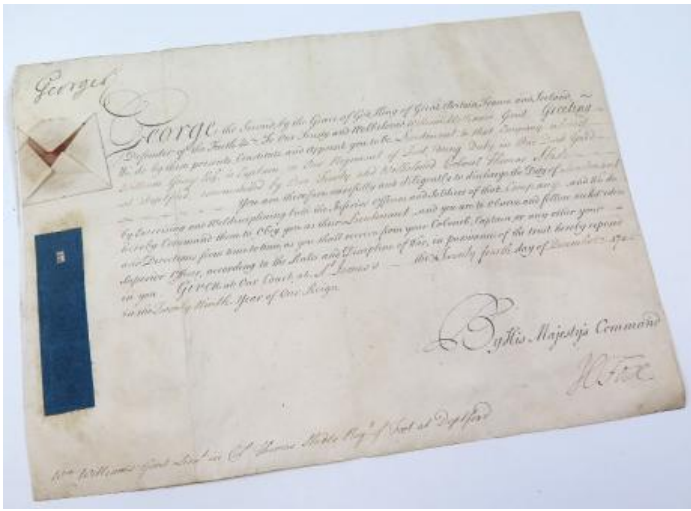 George R
GEORGE the Second, by the Grace of God, King of Great Britain, France and Ireland,
Defender of the Faith &c. To Our Trusty and Wellbeloved William Williams Gent. Greeting
We do by these presents, Constitute and Appoint you to be Lieutenant to that Company whereof
William Esqr. is Captain, in Our Regiment of Foot, doing Duty in Our Dock Yard
at Deptford, commanded by Our Trusty and Wellbeloved Colonel Thomas
You are therefore carefully and diligently to discharge the Duty of Lieutenant
by Exercising and Well disciplining both the Inferior Officers and Soldiers of that Company, and We do
hereby Command them to Obey you as their Lieutenant, and you are to observe and follow such Orders
and Directions from time to time, as you shall receive from your Colonel, Captain or any other your
Superior Officer, according to the Rules and Discipline of War, in pursuance of the trust hereby reposed
in you. Given at Our Court, at St. James's the Twenty fourth day of December 17
in the Twenty Ninth Year of Our Reign.
By His Majesty's Command
H Fox
Wm. Williams Gent. Lieut. in Col. Thomas Regt. of Foot at Deptford